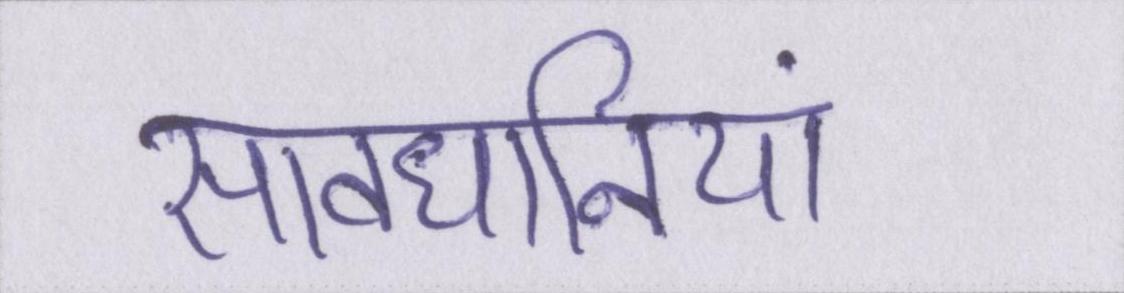 सावधानियां